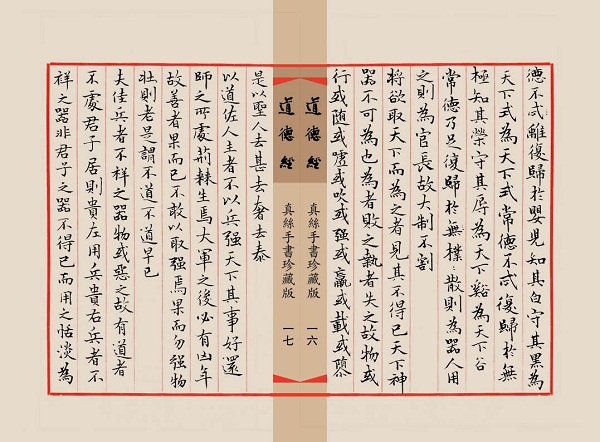 德不忒離復歸於嬰兒知其白守其黑為
天下式為天下式常德不忒復歸於無
極知其榮守其辱為天下谿為天下谷
常德乃足復歸於無樸樸散則為器人用
之則為官長故大制不割
將欲取天下而為之者見其不得已天下神
器不可為也為者敗之執者失之故物或
行或随或噓或吹或强或羸或載或隳
道德經
真絲手書珍藏版
一六
道德經
真絲手書珍藏版
一七
是以聖人去甚去奢去泰
以道佐人主者不以兵强天下其事好還
師之所處荊棘生焉大軍之後必有凶年
故善者果而已不敢以取强焉果而勿强物
壯則老是謂不道不道早已
夫佳兵者不祥之器物或惡之故有道者
不處君子居則貴左用兵貴右兵者不
祥之器非君子之器不得已而用之恬淡為